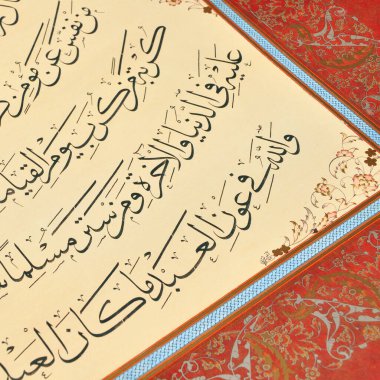 من نفس عن مؤمن
كربة من كرب يوم القيامة
عليه في الدنيا والآخرة ومن ستر مسلما
والله في عون العبد ما كان العبد